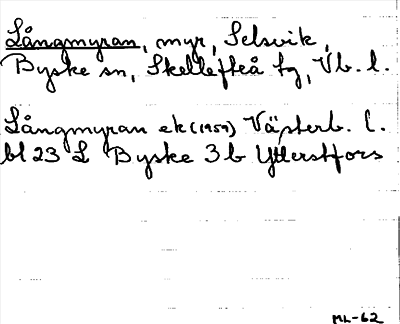 Långmyran, myr, Selsvik,
Byske sn, Skellefteå tg, Vb. l.
Långmyran ek (1959) Västerb. l.
bl 23 L Byske 3b Ytterstfors
ML-62